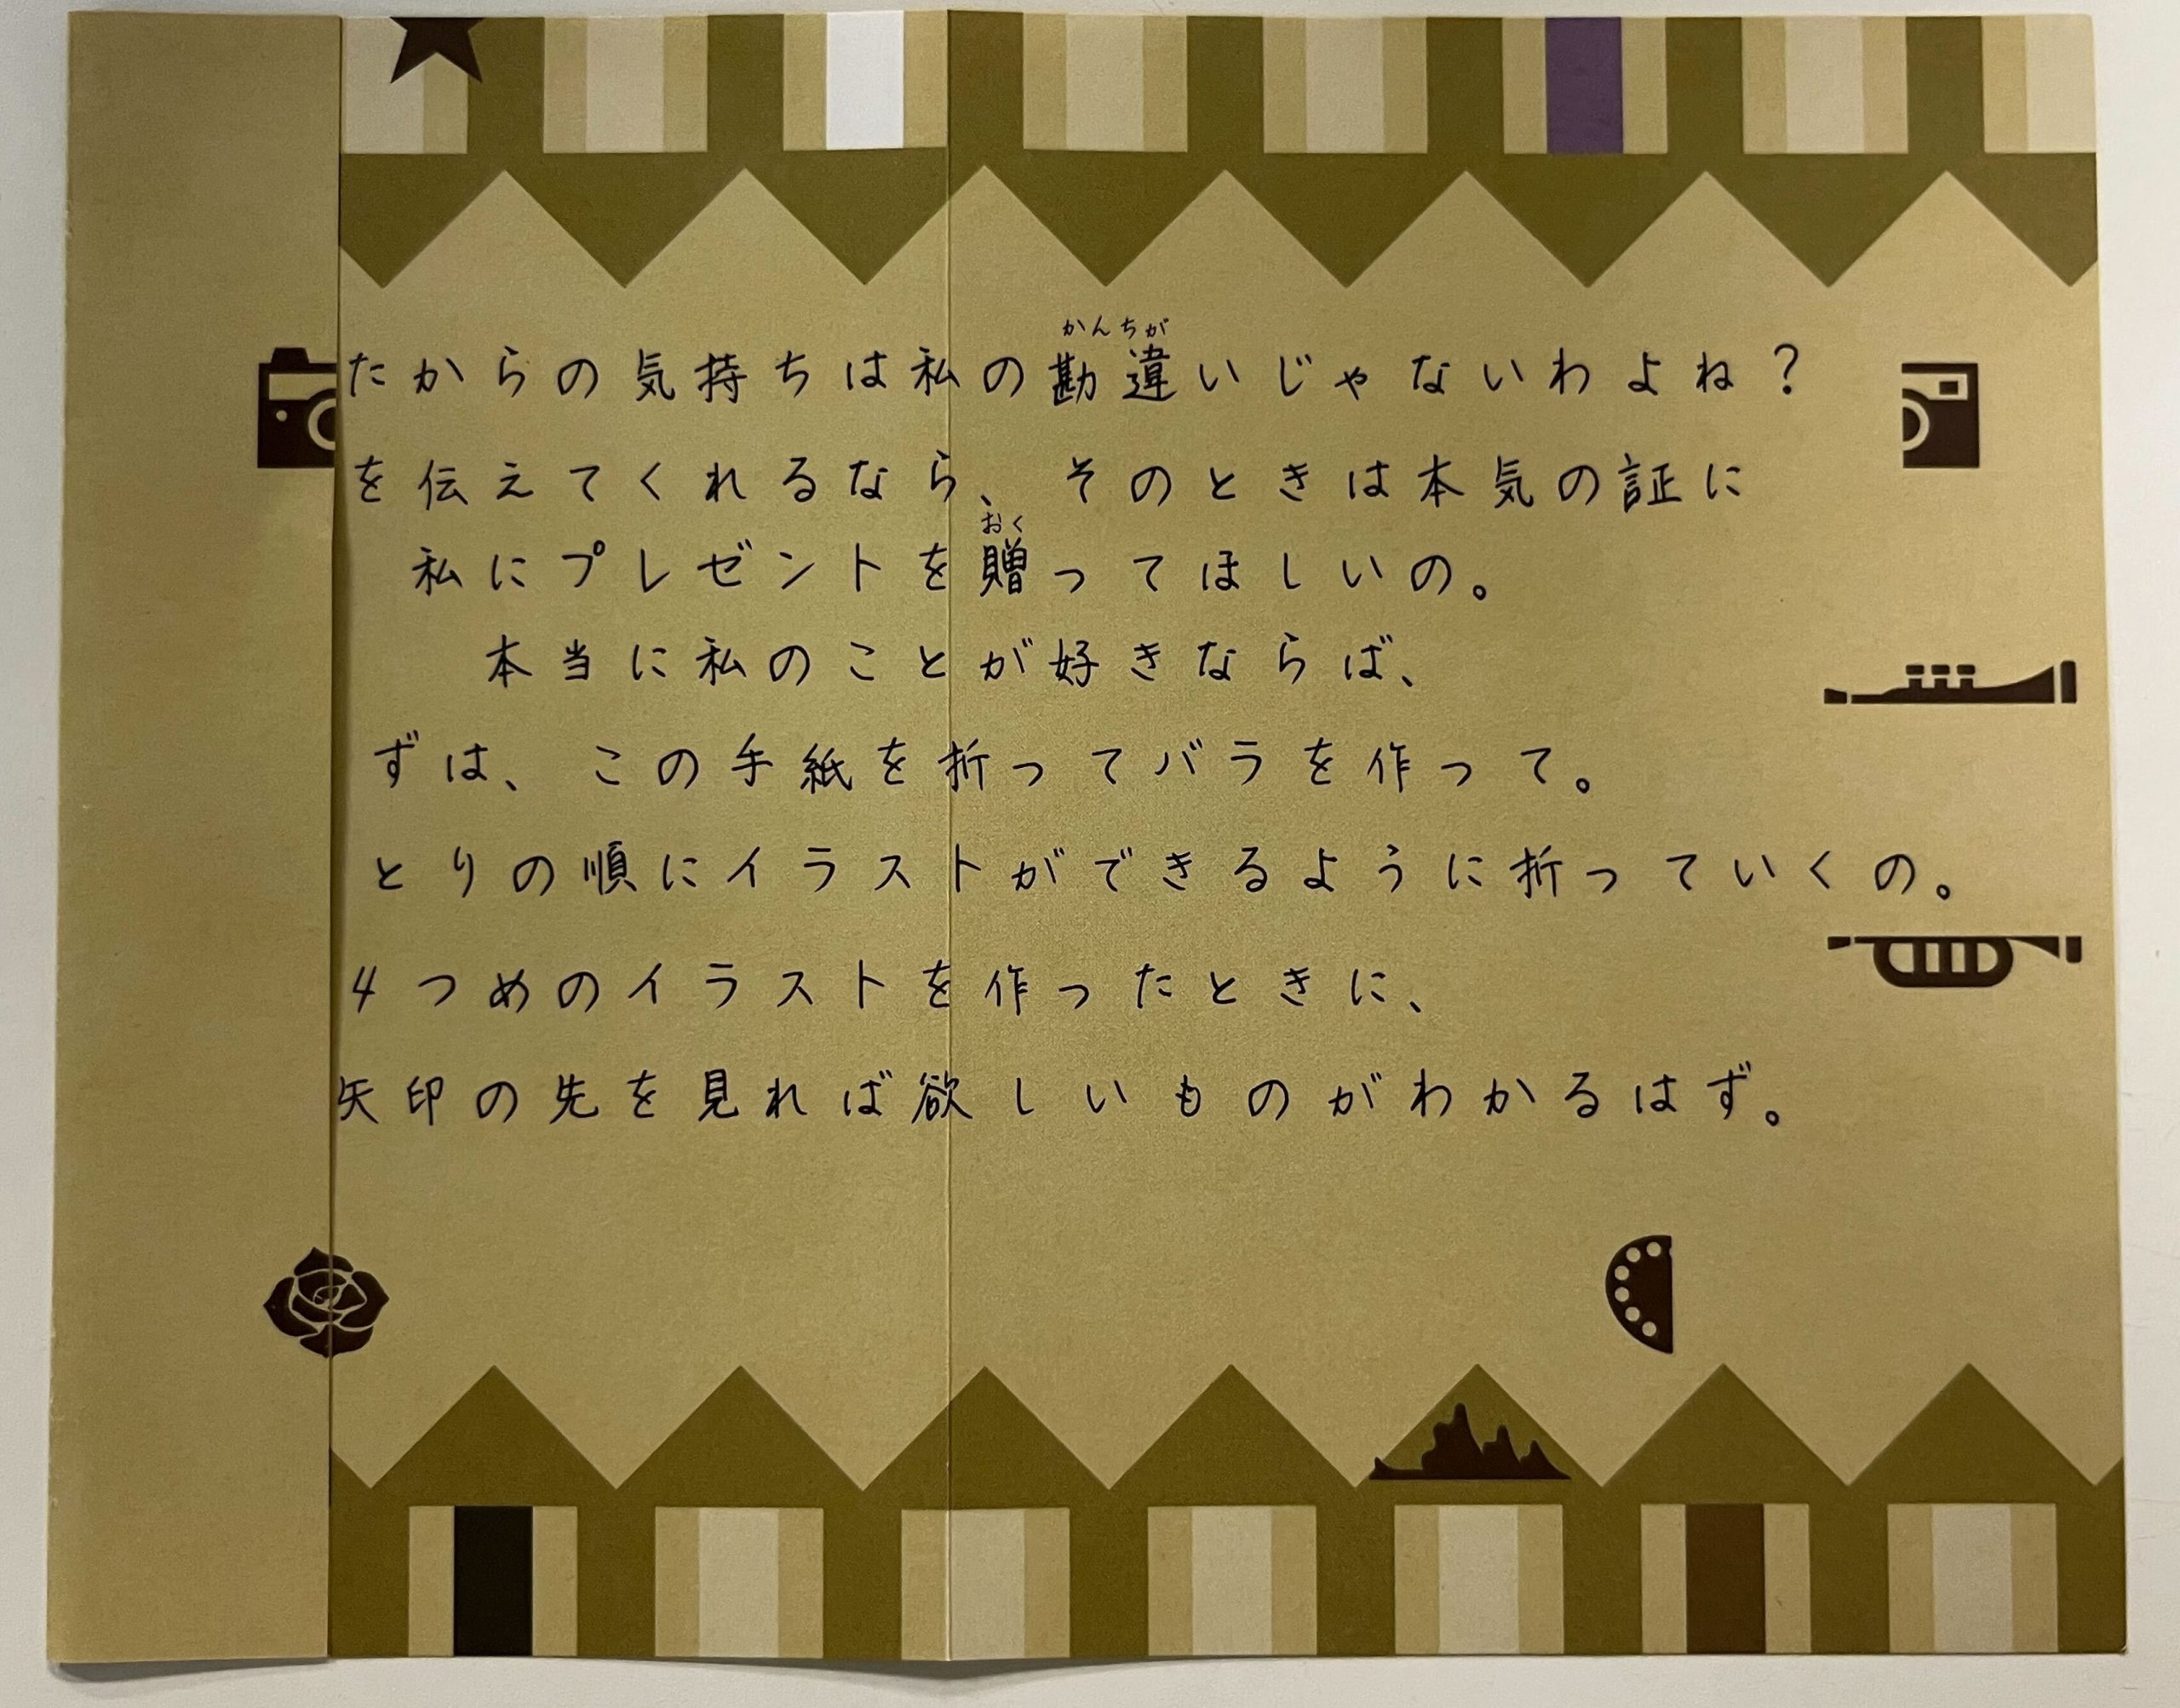 たからの気持ちは私の勘違いじゃないわよね？
かんちが
を伝えてくれるなら、そのときは本気の証に
私にプレゼントを贈ってほしいの。
おく
本当に私のことが好きならば、
ずは、この手紙を折ってバラを作って。
とりの順にイラストができるように折っていくの。
4つめのイラストを作ったときに、
矢印の先を見れば欲しいものがわかるはず。